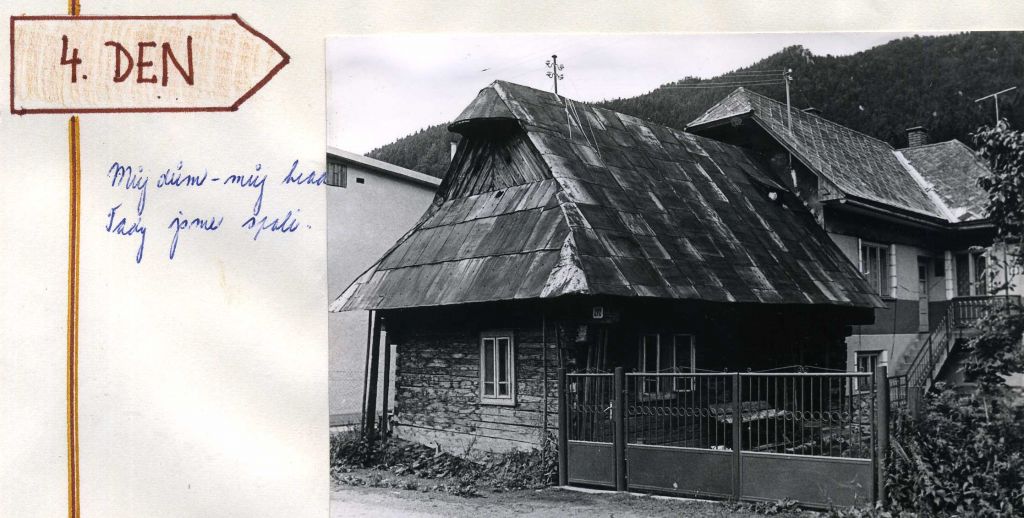 4. DEN
Můj dům - můj hrad
Tady jsme spali.